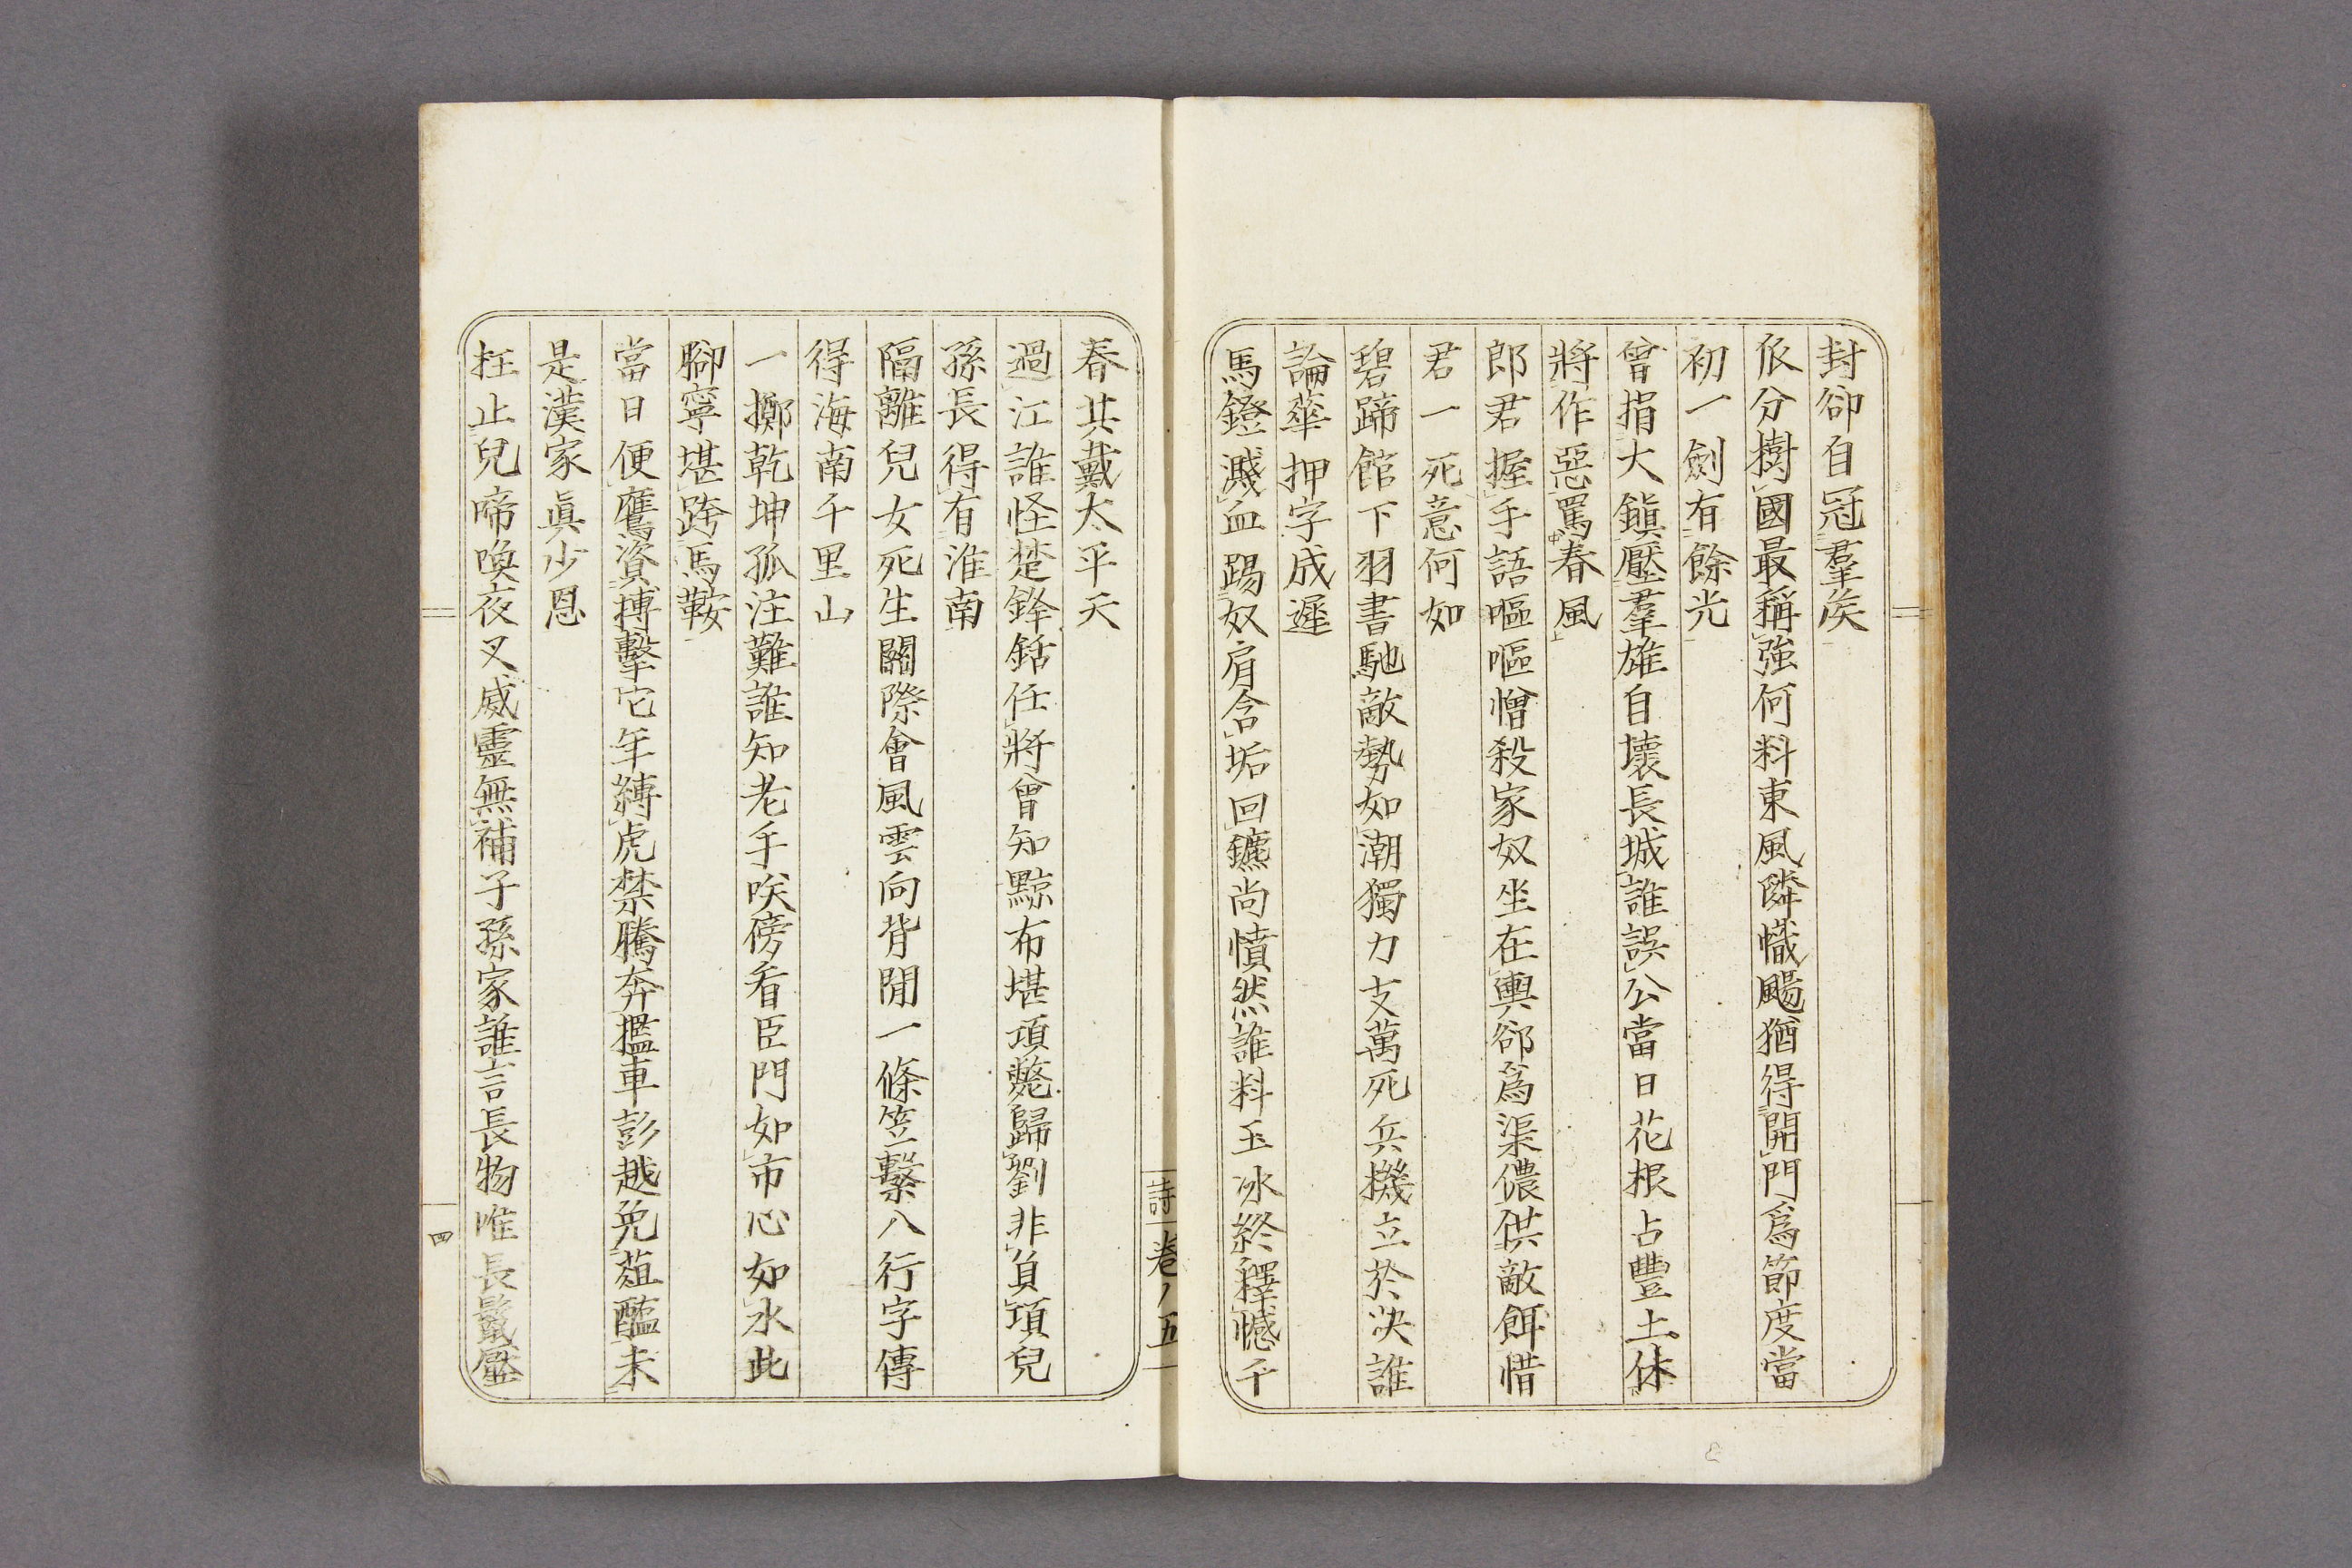 封卻自冠羣侯
依分樹國最稱強何料東風隣幟颺猶得開門爲節度當
初一劍有餘光
曾捐大鎭壓羣雄自壞長城誰誤公當日花根占豐土休
將作惡罵春風
郎君握手語嘔嘔憎殺家奴坐在輿卻爲渠儂供敵餌惜
君一死意何如
碧蹄館下羽書馳敵勢如潮獨力支萬死兵機立於決誰
論華押字成遲
馬鐙濺血踢奴肩含垢回鑣尚憤然誰料玉冰終釋憾千
春共戴太平天
過江誰怪楚鋒銛任將曾知黥布堪項斃歸劉非負項兒
孫長得有淮南
隔離兒女死生關際會風雲向背閒一條笠繫八行字傳
得海南千里山
一擲乾坤孤注難誰知老手咲傍看臣門如市心如水此
腳寧堪跨馬鞍
當日便鷹資搏擊它年縛虎禁騰奔檻車彭越免葅醢未
是漢家眞少恩
枉止兒啼喚夜叉威靈無補子孫家誰言長物唯長鬣壓
詩 卷八 五
四